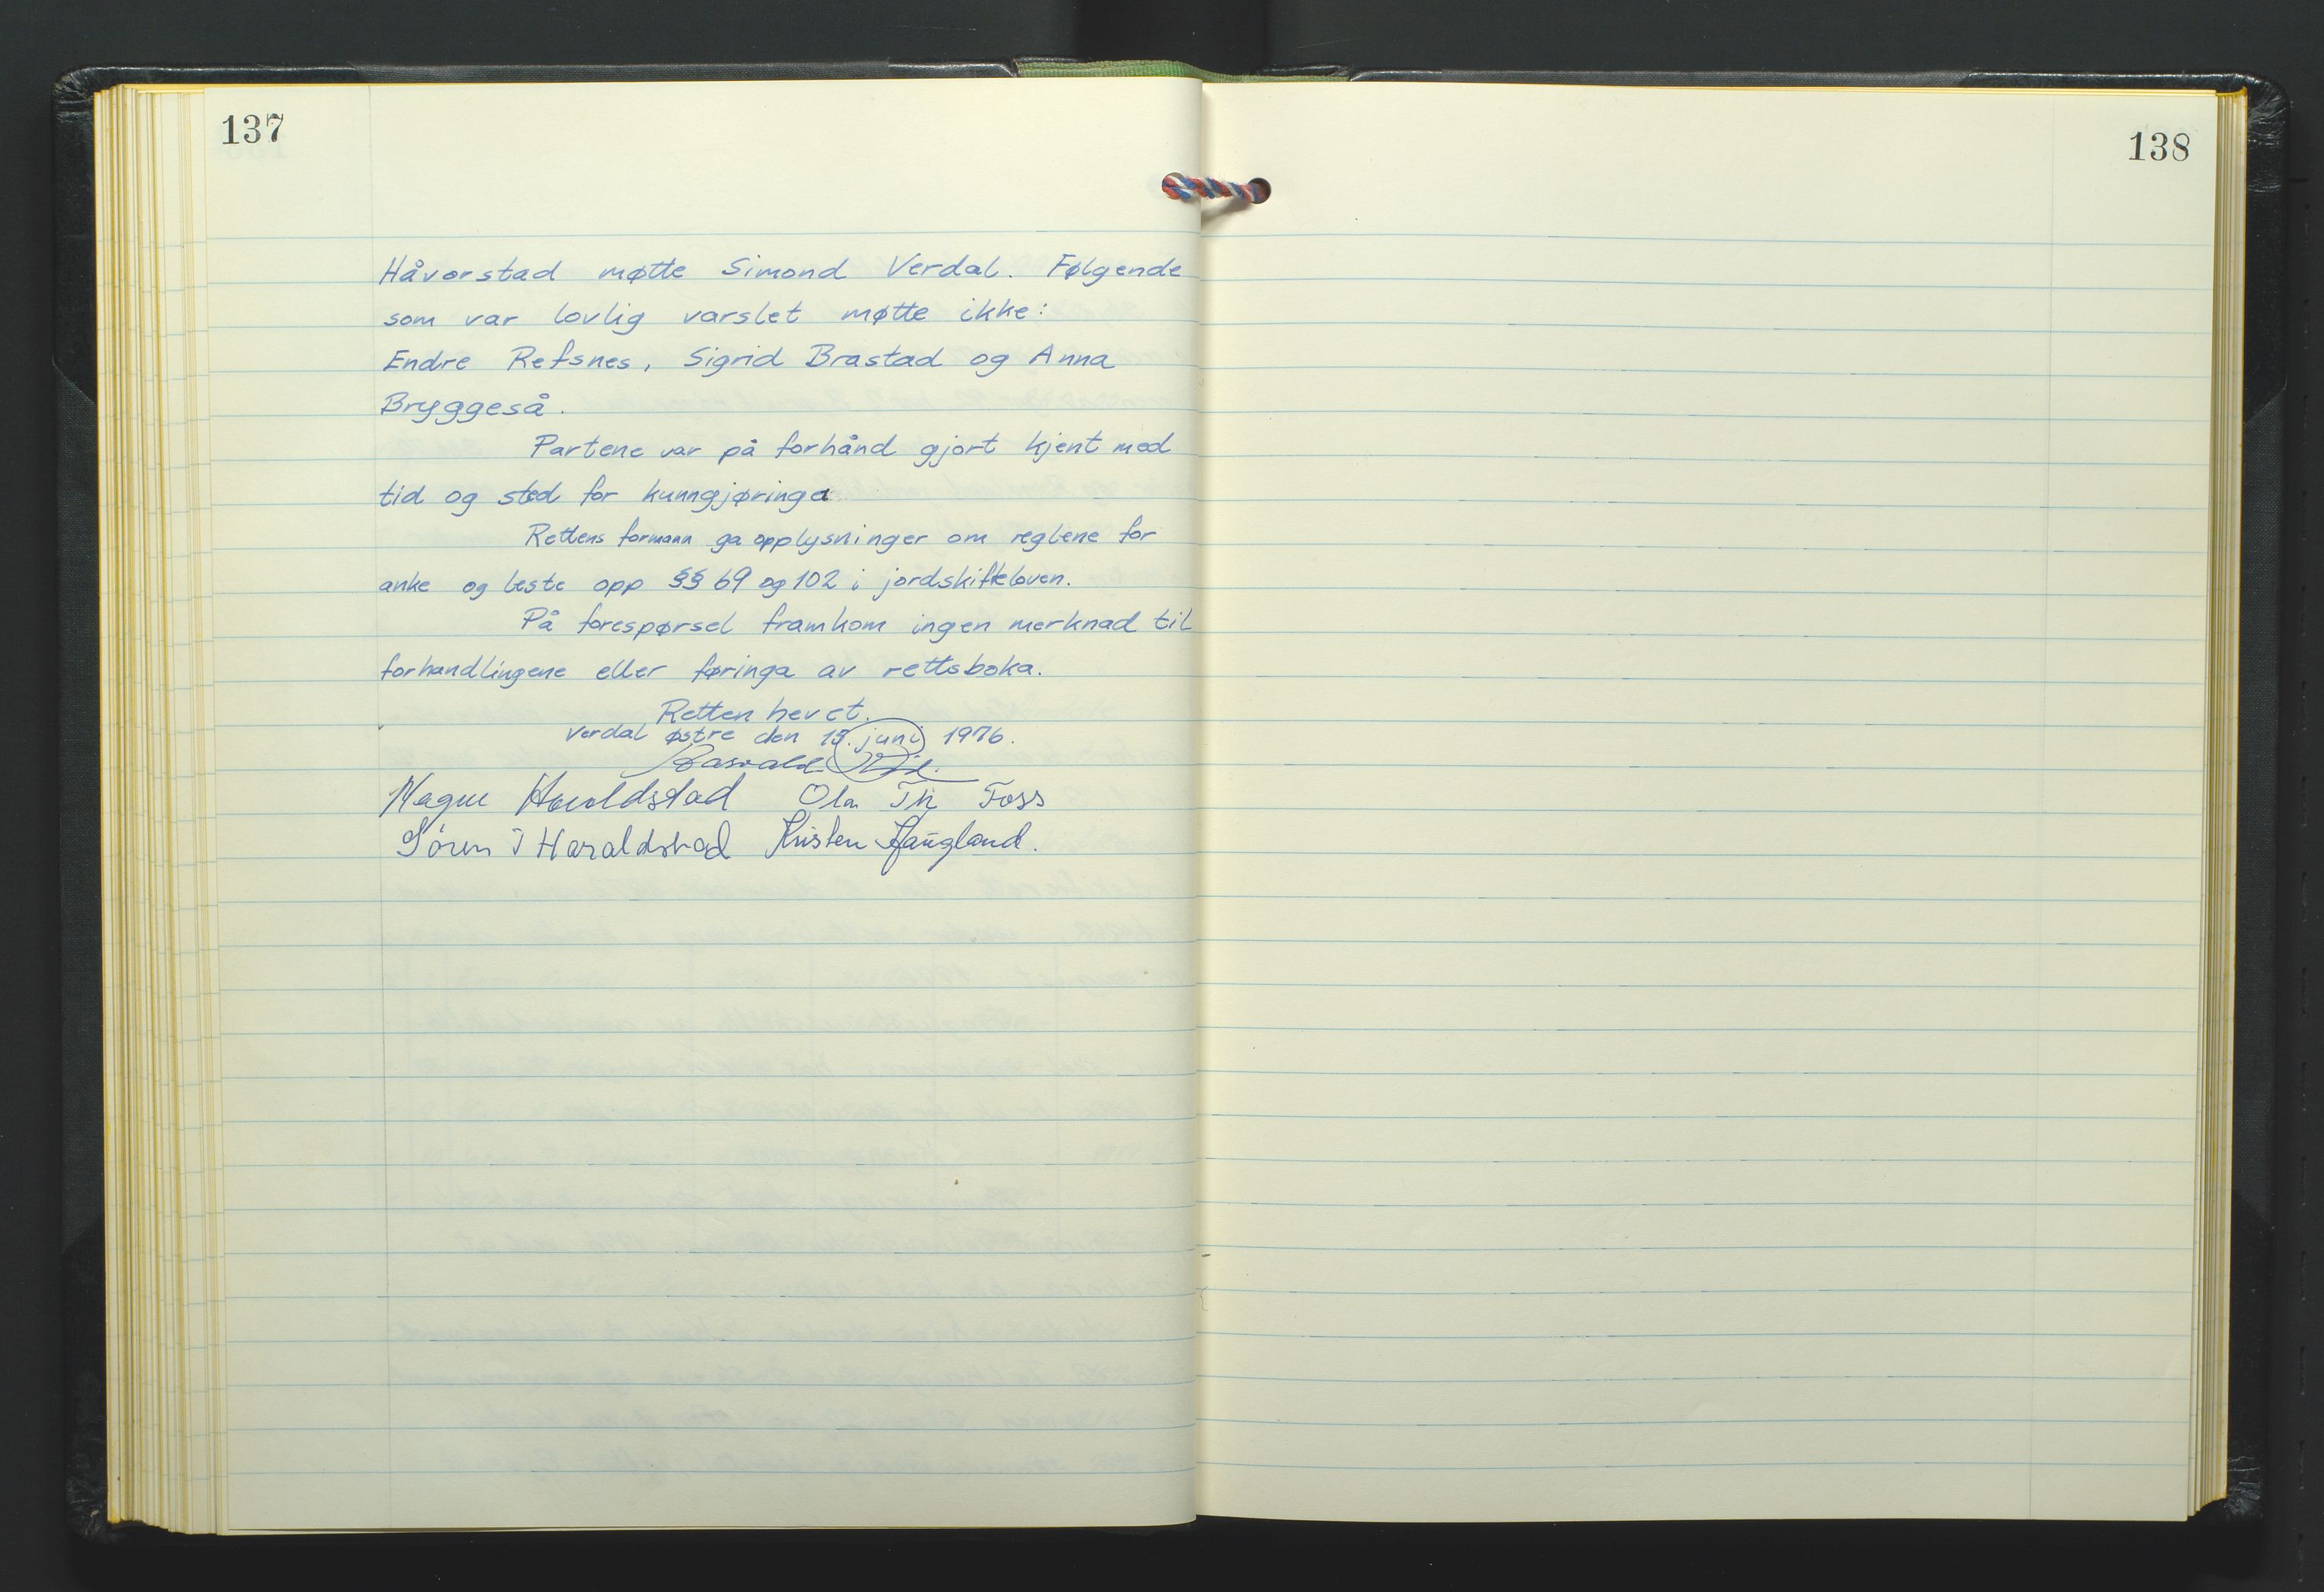 137
Håvorstad møtte Simond Verdal. Følgende
som var lovlig varslet møtte ikke:
Endre Refsnes, Sigrid Brastad og Anna
Bryggeså.
Partene var på forhånd gjort kjent med
tid og sted for kunngjøringa
Rettens formann ga opplysninger om reglene for
anke og leste opp §§ 69 og 102 i jordskifteloven.
På forespørsel framkom ingen merknad til
forhandlingene eller føringa av rettsboka.
Retten hevet.
Verdal østre den 15. juni 1976.
Haraldstad Ola Th Foss
Søren T Haraldstad Kristen Haugland.
138